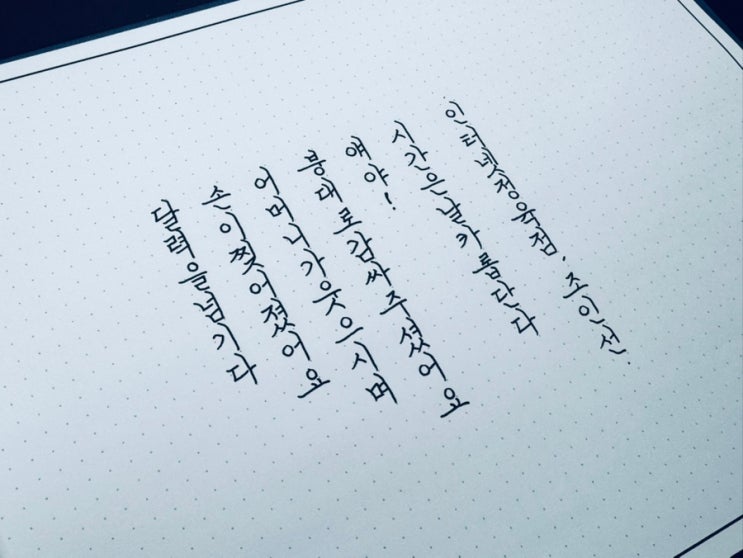 달력을넘기다
손이찢어졌어요
어머니가웃으시며
붕대로감싸주셨어요
얘야!
시간은날카롭단다
인터넷정육점. 조인선.